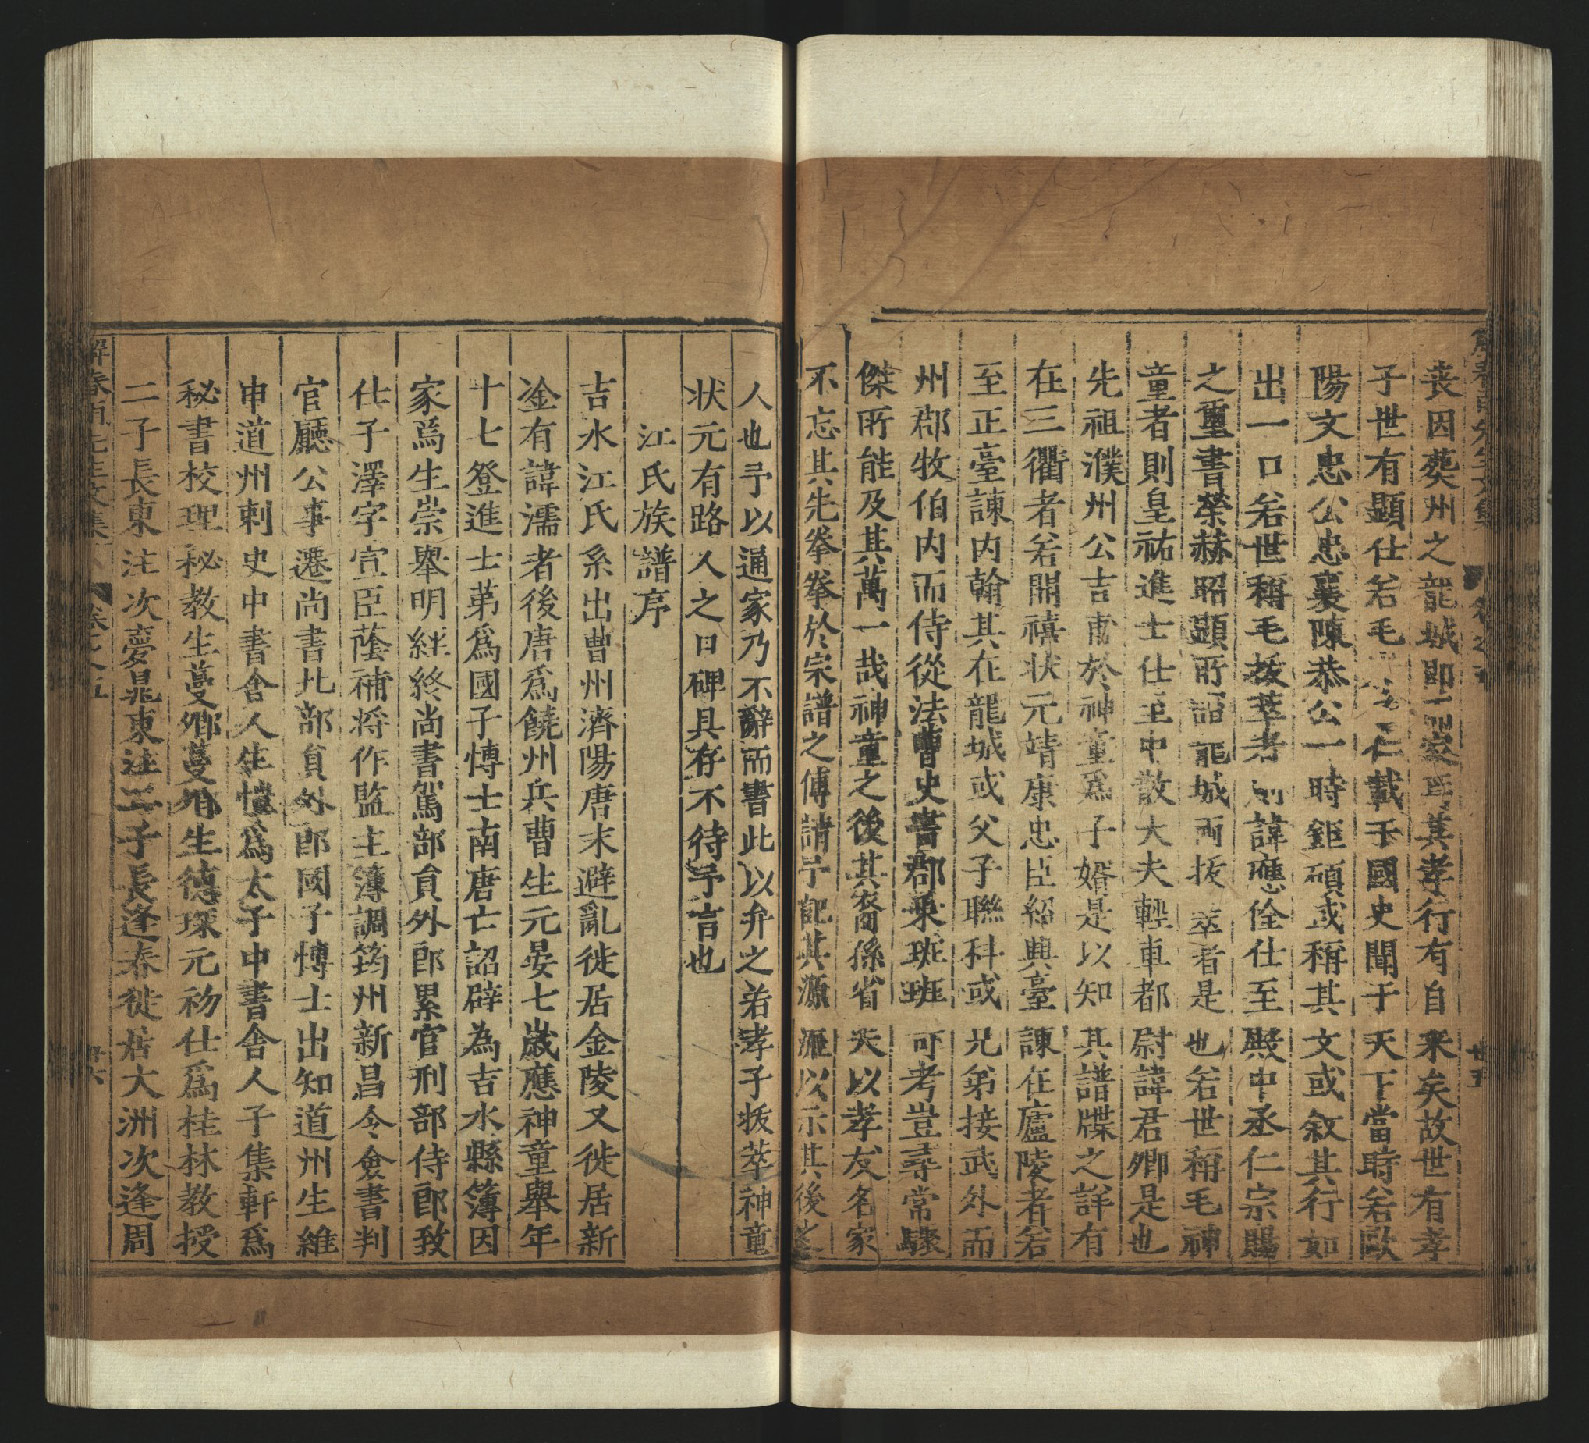 丧因葬州之龍城即家其孝行有自来矣故世有孝
子世有顯仕若毛仁載于國史聞于天下當時若歐
陽文忠公忠襄陳恭公一時鉅碩或稱其文或敘其行如
出一口若世稱毛拔萃者則諱應佺仕至殿中丞仁宗賜
之璽書榮赫昭顯所謂龍城兩拔萃者是也若世稱毛神
童者則皇祐進士仕至中散大夫輕車都尉諱君卿是也
先祖濮州公吉甫於神童爲子婿是以知其譜牒之詳有
在三衢者若開禧状元靖康忠臣紹興臺諫在廬陵者若
至正臺諫内翰其在龍城或父子聯科或兄弟接武外而
州郡牧伯内而侍從法曹史書郡乘班班可考豈尋常驟
傑所能及其萬一哉神童之後其裔孫省夫以孝友名家
不忘其先拳拳於宗譜之傳請予記其源涯以示其後
人也予以通家乃不辭而書此以弁之若孝子拔萃神童
状元有路人之曰碑具存不待予言也
江氏族譜序
吉水江氏系出曹州濟陽唐末避亂徙居金陵又徙居新
淦有諱濡者後唐爲饒州兵曹生元晏七歲應神童舉年
十七登進士第爲國子博士南唐亡詔辟為吉水縣簿因
家焉生崇舉明經終尚書駕部員外郎累官刑部侍郎致
仕子澤字宣臣蔭補將作監主簿調筠州新昌令僉書判
官廳公事遷尚書比部員外郎國子博士出知道州生維
申道州刺史中書舍人生慥爲太子中書舍人子集軒爲
秘書校理秘教生蔓鄉蔓鄉生德琛元初仕爲桂林教授
二子長東注次夢晁東注二子長逢春徙居大洲次逢周
解春雨先生文集 卷之五